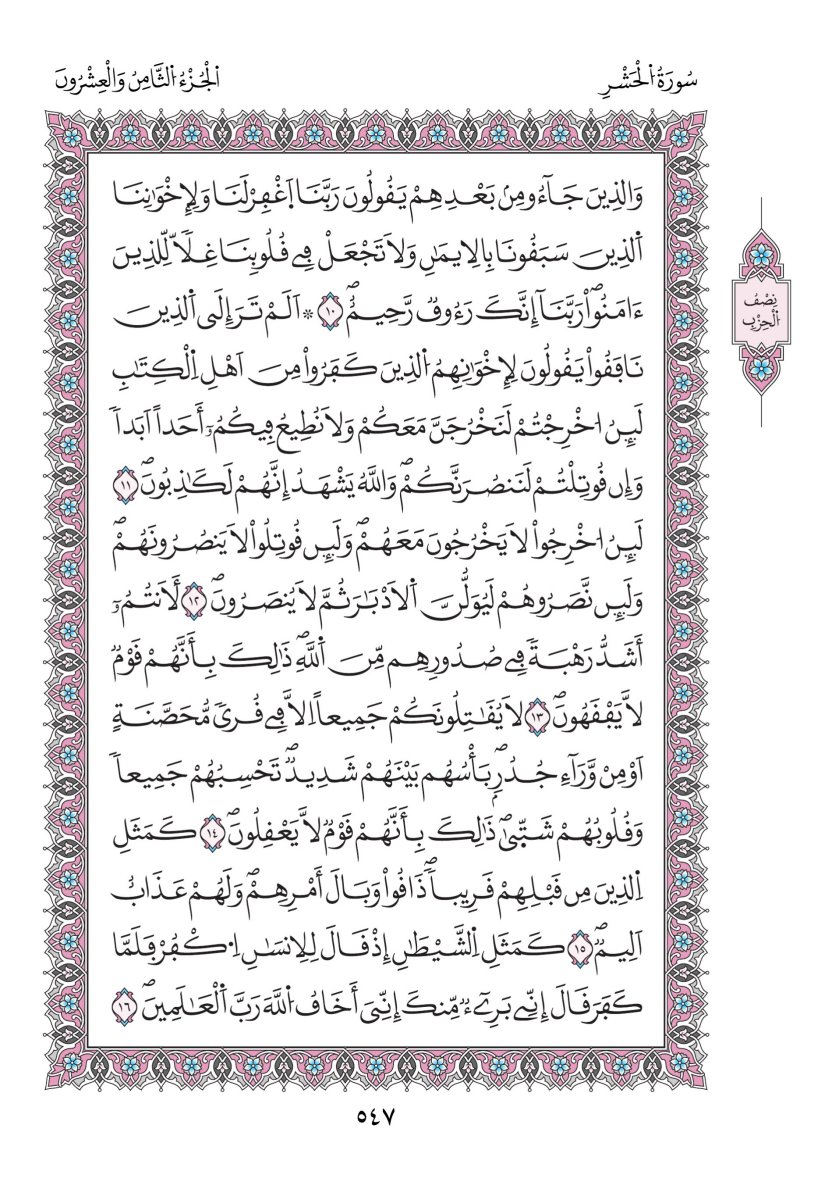 سُورَةُ اُ۬لْحَشْرِ
اَ۬لْجُزْءُ اُ۬لثَّامِنُ وَالْعِشْرُونَ
وَالذِينَ جَآءُو مِنۢ بَعْدِهِمْ يَقُولُونَ رَبَّنَا اَ۪غْفِرْ لَنَا وَلِإِخْوَٰنِنَا
اَ۬لذِينَ سَبَقُونَا بِالِايمَٰنِ وَلَا تَجْعَلْ فِے قُلُوبِنَا غِلّاٗ لِّلذِينَ
ءَامَنُواْۖ رَبَّنَآ إِنَّكَ رَءُوفٞ رَّحِيمٌۖ ١٠ ۞ اَلَمْ تَرَ إِلَى اَ۬لذِينَ
نَافَقُواْ يَقُولُونَ لِإِخْوَٰنِهِمُ اُ۬لذِينَ كَفَرُواْ مِنَ اَهْلِ اِ۬لْكِتَٰبِ
لَئِنُ ا۟خْرِجْتُمْ لَنَخْرُجَنَّ مَعَكُمْ وَلَا نُطِيعُ فِيكُمُۥٓ أَحَداً اَبَداٗ
وَإِن قُوتِلْتُمْ لَنَنصُرَنَّكُمْۖ وَاللَّهُ يَشْهَدُ إِنَّهُمْ لَكَٰذِبُونَۖ ١١
لَئِنُ ا۟خْرِجُواْ لَا يَخْرُجُونَ مَعَهُمْۖ وَلَئِن قُوتِلُواْ لَا يَنصُرُونَهُمْۖ
وَلَئِن نَّصَرُوهُمْ لَيُوَلُّنَّ اَ۬لَادْبَٰرَ ثُمَّ لَا يُنصَرُونَۖ ١٢ لَأَنتُمُۥٓ
أَشَدُّ رَهْبَةٗ فِے صُدُورِهِم مِّنَ اَ۬للَّهِۖ ذَٰلِكَ بِأَنَّهُمْ قَوْمٞ
لَّا يَفْقَهُونَۖ ١٣ لَا يُقَٰتِلُونَكُمْ جَمِيعاً اِلَّا فِے قُريٗ مُّحَصَّنَةٍ
اَوْ مِنْ وَّرَآءِ جُدُرِۢۖ بَأْسُهُم بَيْنَهُمْ شَدِيدٞۖ تَحْسِبُهُمْ جَمِيعاٗ
وَقُلُوبُهُمْ شَتّ۪يٰۖ ذَٰلِكَ بِأَنَّهُمْ قَوْمٞ لَّا يَعْقِلُونَۖ ١٤ كَمَثَلِ
اِ۬لذِينَ مِن قَبْلِهِمْ قَرِيباٗۖ ذَاقُواْ وَبَالَ أَمْرِهِمْۖ وَلَهُمْ عَذَابٌ
اَلِيمٞۖ ١٥ كَمَثَلِ اِ۬لشَّيْطَٰنِ إِذْ قَالَ لِلِانسَٰنِ اِ۟كْفُرْ فَلَمَّا
كَفَرَ قَالَ إِنِّے بَرِےٓءٞ مِّنكَ إِنِّيَ أَخَافُ اُ۬للَّهَ رَبَّ اَ۬لْعَٰلَمِينَۖ ١٦
نِصْفُ
اُ۬لْحِزْبِ
٥٤٧